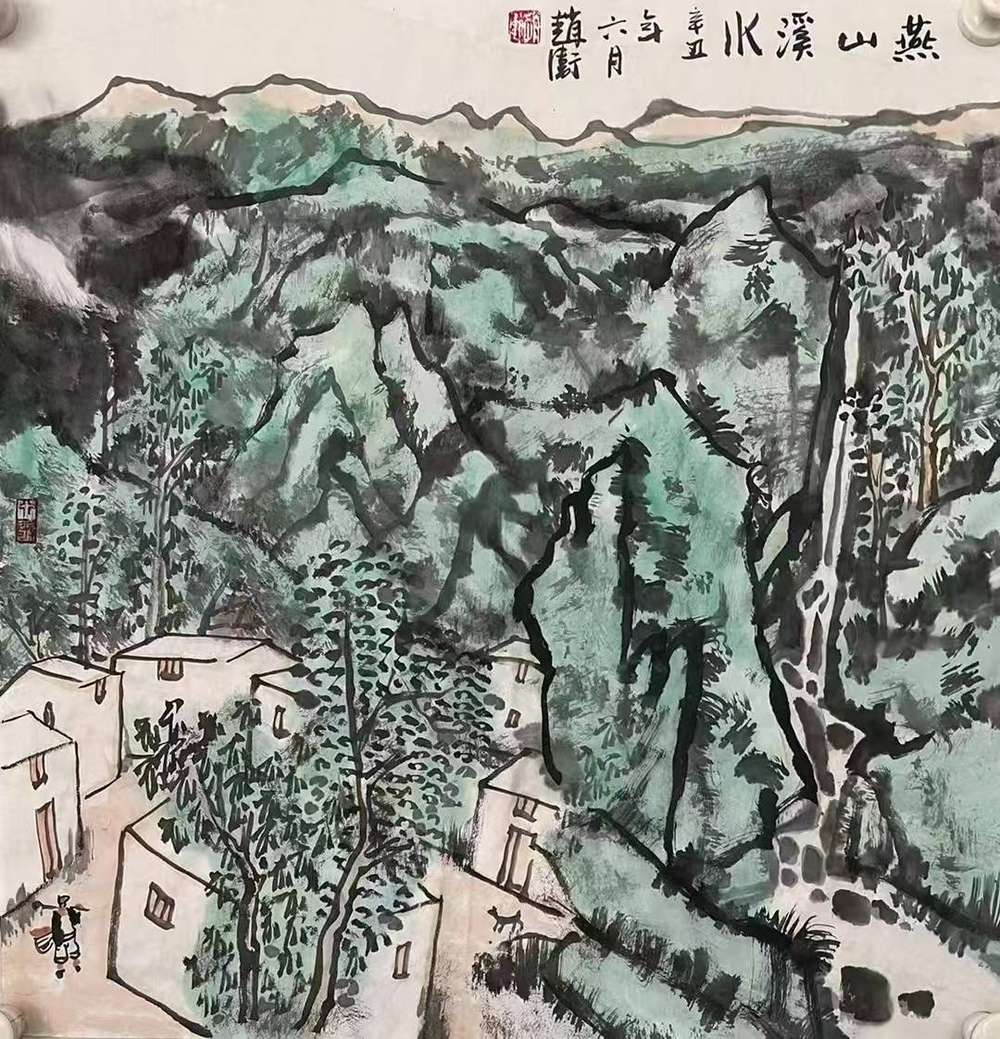 燕山溪水
辛丑
年
六月
趙衛